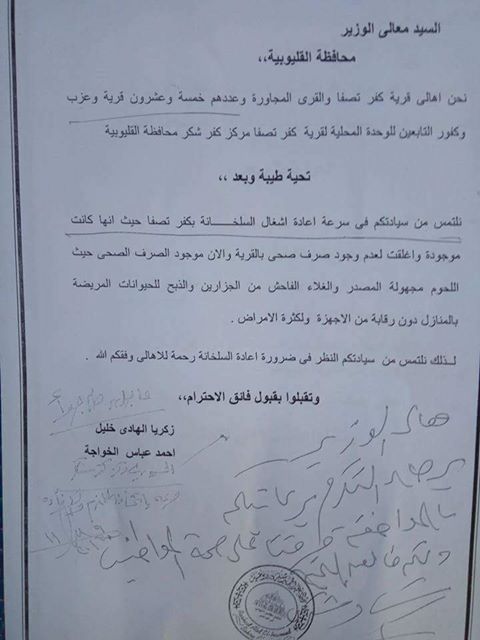 السيد معالى الوزير
محافظة القليوبية،،
نحن اهالى قرية كفر تصفا والقرى المجاورة وعددهم خمسة وعشرون قرية وعزب
وكفور التابعين للوحدة المحلية لقرية كفر تصفا مركز كفر شكر محافظة القليوبية
تحية طيبة وبعد ،،
نلتمس من سيادتكم فى سرعة اعادة اشغال السلخـــــانة بكفر تصفا حيث انها كانت
موجودة واغلقت لعدم وجود صرف صحى بالقرية والان موجود الصرف الصحى حيث
اللحوم مجهولة المصدر والغلاء الفاحش من الجزارين والذبح للحيوانات المريضة
بالمنازل دون رقابة من الاجهزة ولكثرة الامراض .
لـــذلك نلتمس من سيادتكم النظر فى ضرورة اعادة السلخانة رحمة للاهالى وفقكم الله .
وتقبلوا بقبول فائق الاحترام،،
زكريا الهادى خليل
احمد عباس الخواجة
معالى الوزير
برجاء التكرم
بالموافقة